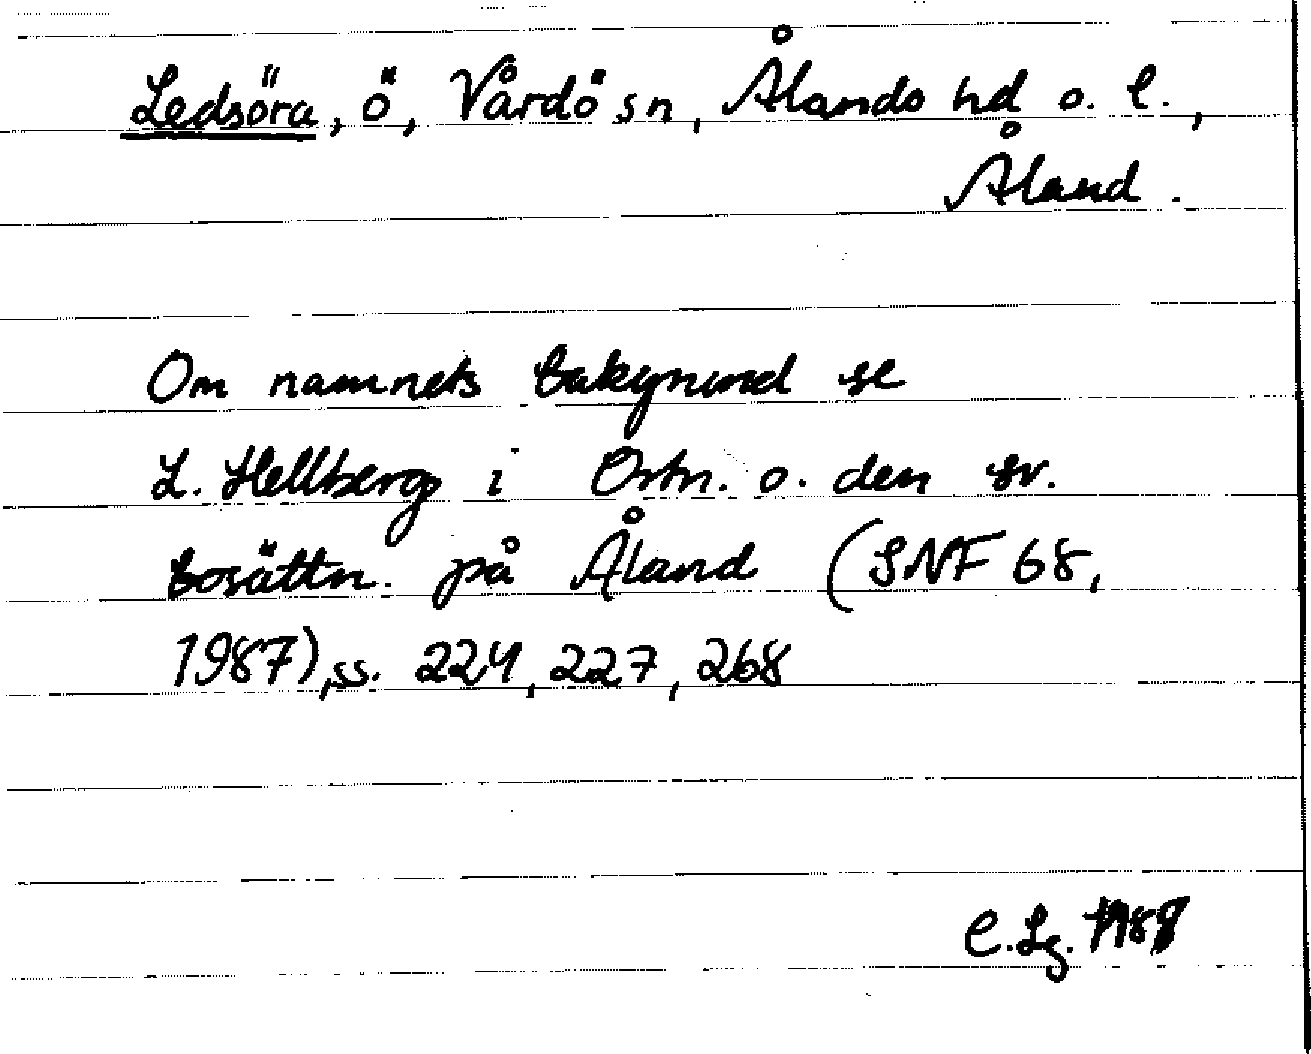 Ledsöra, ö, Vårdö sn, Ålands hd o. l.,
Åland.
Om namnets bakgrund se
L. Hellberg i Ortn. o. den sv.
bosättn. på Åland (SNF 68,
1987), ss. 224, 227, 268
C. Lg.